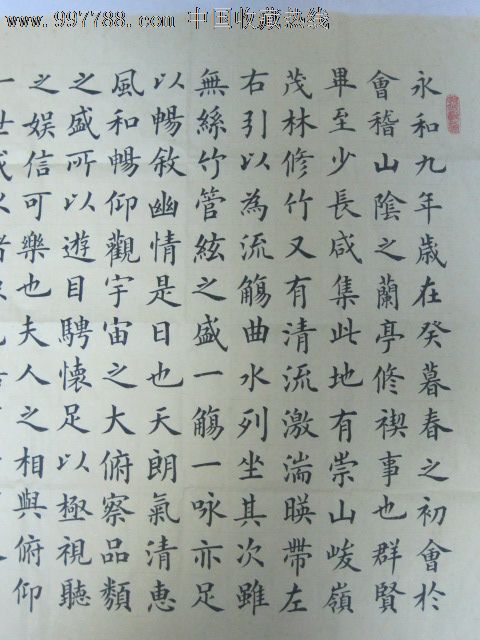 www.997788.com 中国收藏热线
永和九年歲在癸暮春之初會於
會稽山陰之蘭亭修禊事也群賢
畢至少長咸集此地有崇山峻嶺
茂林修竹又有清流激湍暎帶左
右引以為流觴曲水列坐其次雖
無絲竹管絃之盛一觴一咏亦足
以暢敘幽情是日也天朗氣清惠
風和暢仰觀宇宙之大俯察品類
之盛所以遊目騁懷足以極視聽
之娛信可樂也夫人之相與俯仰
一世